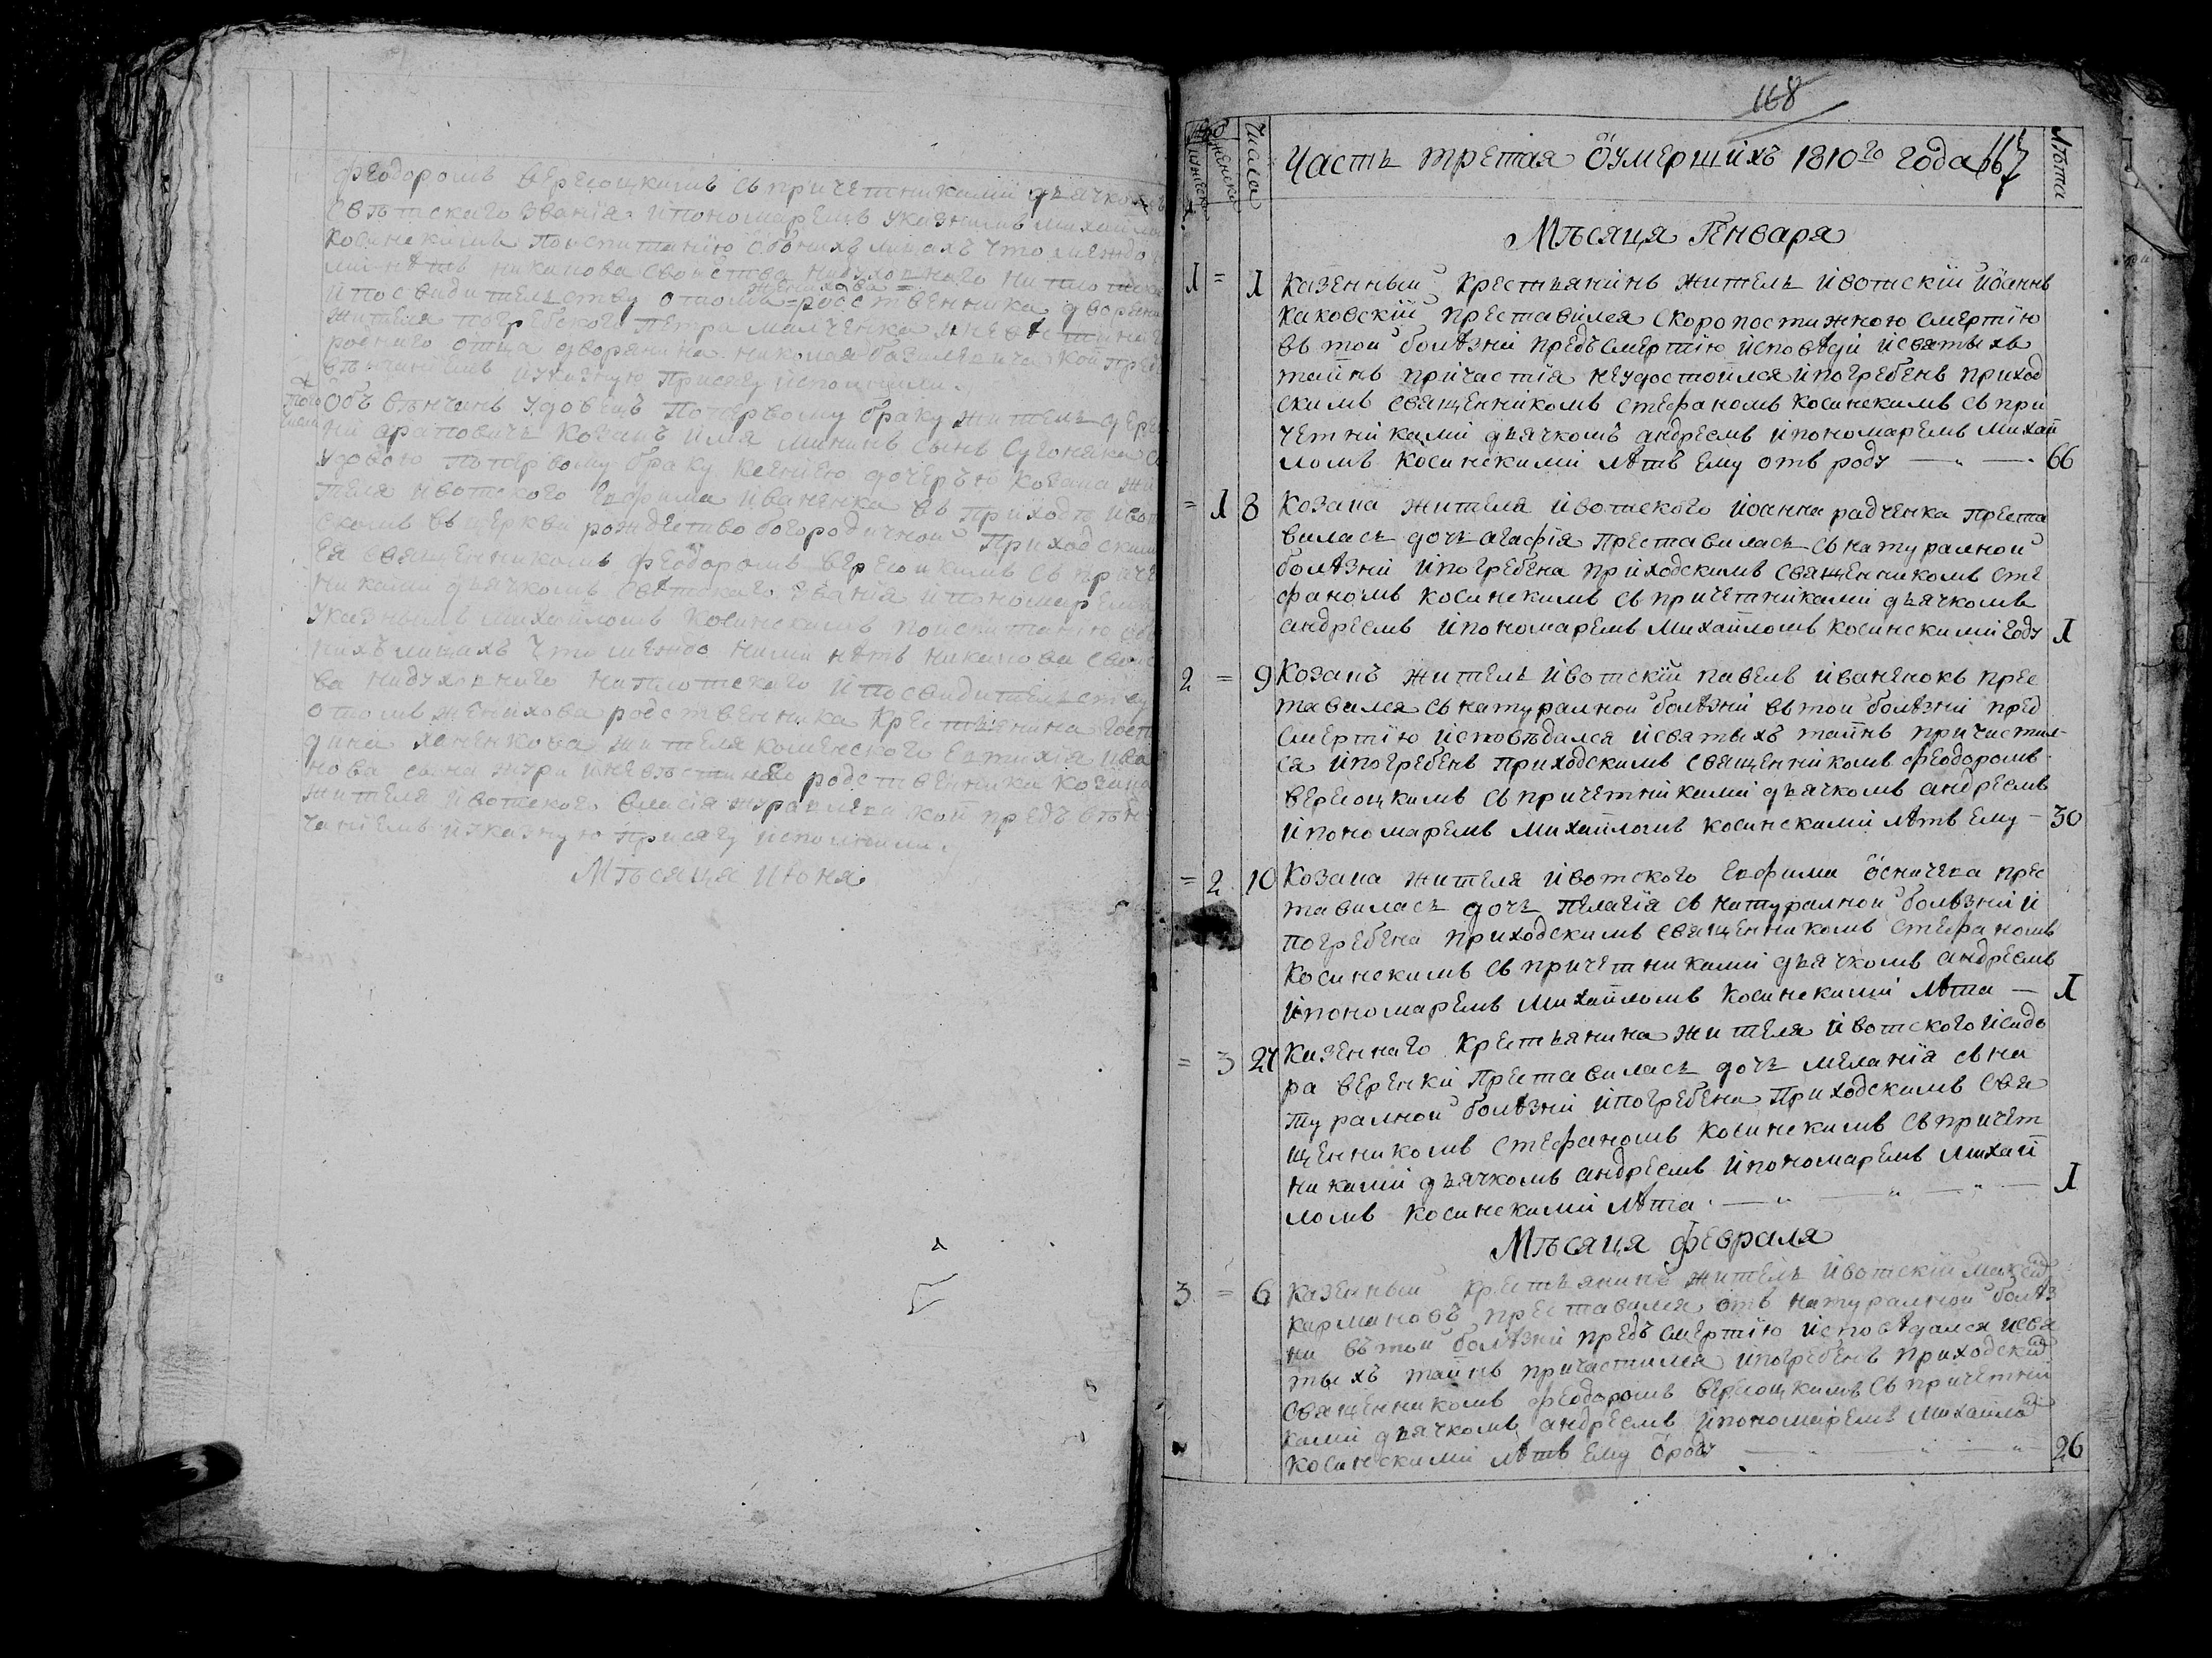 Феодоромъ Верещкимъ съ причетниками дьячкомъ
свѣтскаго званія и пономаремъ указнимъ Михайло
Косинскимъ по испитанію о обоихъ лицахъ что между
ми нѣтъ никакова свойства ни духовнаго ни плотска
женихова
и по свидителству о томъ родственника дворяни
жителя погребского Петра Малченка и невѣстина
роднаго отца дворянина Николая кой пред
вѣнчаніемъ и указную присягу исполнили.
Того числа
Объ вѣнчанъ удовецъ по первому браку житель дерев
ни араповичъ козакъ имя сынъ
удовою по первому браку Ксенією дочерью козака жи
теля ивотского Евфима Иваненка въ приходѣ ивот
скомъ въ церкви рождество богородичной приходскимъ
ея священникомъ Феодоромъ Верещкимъ съ приче
никами дьячкомъ свѣтскаго званія и пономаремъ
указнымъ Михайломъ Косинскимъ по испитанію обо
ихъ лицахъ что между ними нѣтъ никакова свойст
ва ни духовнаго ни плотскаго и по свидителству
о томъ женихова родственника крестьянина госпо
дина жителя Евтихія Ива
нова сына и невѣстиного родственника козака
жителя ивотского Власія кой предъ вѣн
чаніемъ и указную присягу исполнили.
Мѣсяця Июня
168
Числа
Часть третая о умершихъ 1810го года 167
Лѣта
Мѣсяця Генваря
1 = 1 Казенный крестьянинъ житель ивотскій Иоаннъ
Каковскій преставился скоропостижною смертію
въ той болѣзни предъ смертію исповѣди и святыхъ
тайнъ причастія неудостоился и погребенъ приход
скимъ священникомъ Стефаномъ Косинскимъ съ при
четниками дьячкомъ андреемъ и пономаремъ Михай
ломъ Косинскими лѣтъ ему отъ роду — 66
= 1 8 Козака жителя ивотского Иоанна Радченка преста
вилась дочь агафія преставилась съ натуралной
болѣзни и погребена приходскимъ священникомъ Сте
фаномъ Косинскимъ съ причетниками дьячкомъ
андреемъ и пономаремъ Михайломъ Косинскими году 1
2 = 9 Козакъ житель ивотскій Павелъ Иваненокъ прес
тавился съ натуралной болѣзни въ той болѣзни пред
смертію исповѣдался и святыхъ тайнъ причастил-
ся и погребенъ приходскимъ священникомъ Феодоромъ
Верещкимъ съ причетниками дьячкомъ андреемъ
и пономаремъ Михайломъ Косинскими лѣтъ ему — 30
= 2 10 Козака жителя ивотского Евфима Осничева прес
тавилась дочь Пелагія съ натуралной болѣзни и
погребена приходскимъ священникомъ Стефаномъ
Косинскимъ съ причетниками дьячкомъ андреемъ
и пономаремъ Михайломъ Косинскими лѣта — 1
= 3 27 Казеннаго крестьянина жителя ивотского Исидо
ра Веренки преставилась дочь Меланія съ на
туралной болѣзни и погребена приходскимъ свя
щенникомъ Стефаномъ Косинскимъ съ причет
никами дьячкомъ андреемъ и пономаремъ Михай
ломъ Косинскими лѣта — 1
Мѣсяця Февраля
3 = 6 Казенный крестьянинъ житель ивотскій Максим
Кармановъ преставился отъ натуралной болѣз
ни въ той болѣзни предъ смертію исповѣдался и свя
тыхъ тайнъ причастился и погребенъ приходским
священникомъ Феодоромъ Верещкимъ съ причетни
ками дьячкомъ андреемъ и пономаремъ Михайлом
Косинскими лѣтъ ему о роду — 26